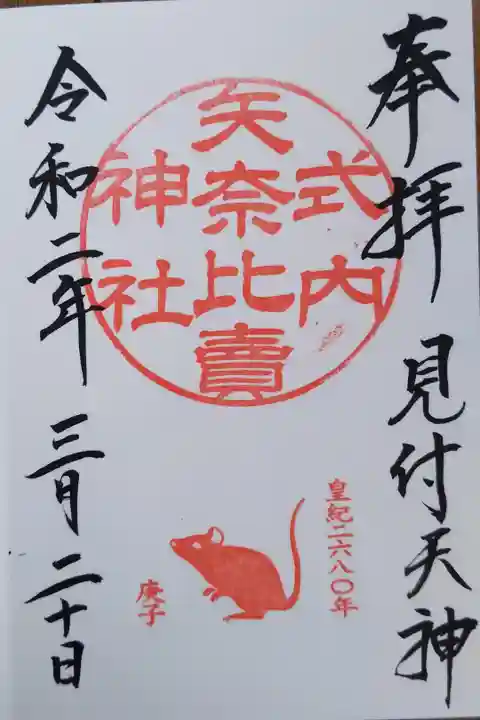 奉拝 見付天神
式内
矢奈比賣
神社
皇紀二六八〇年
庚子
令和二年 三月二十日